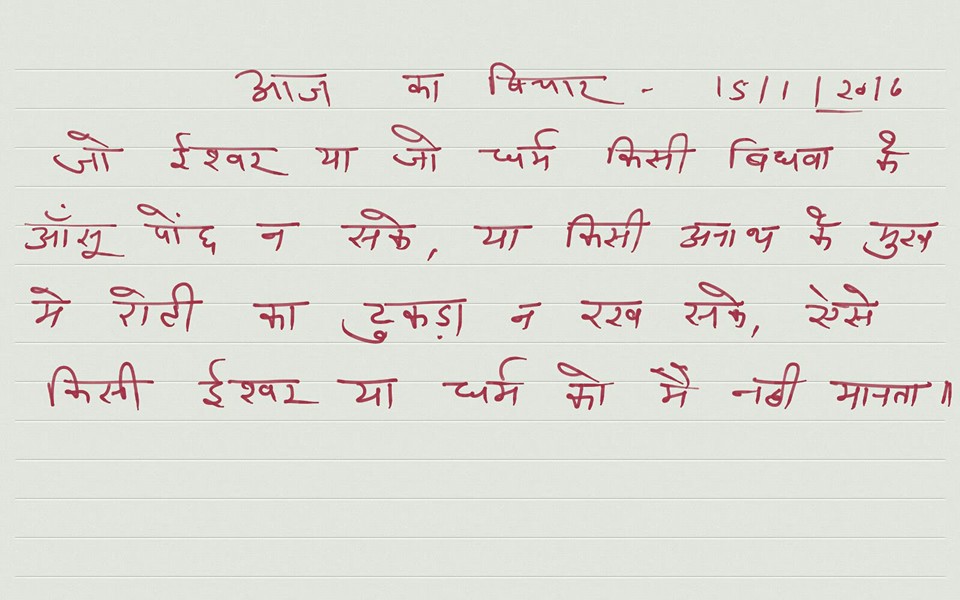 आज का विचार - 15/1/2016
जो ईश्वर या जो धर्म किसी बिधवा के
आँसू पोंछ न सके, या किसी अनाथ के मुख
मे रोटी का टुकड़ा न रख सके, ऐसे
किसी ईश्वर या धर्म को मैं नही मानता॥